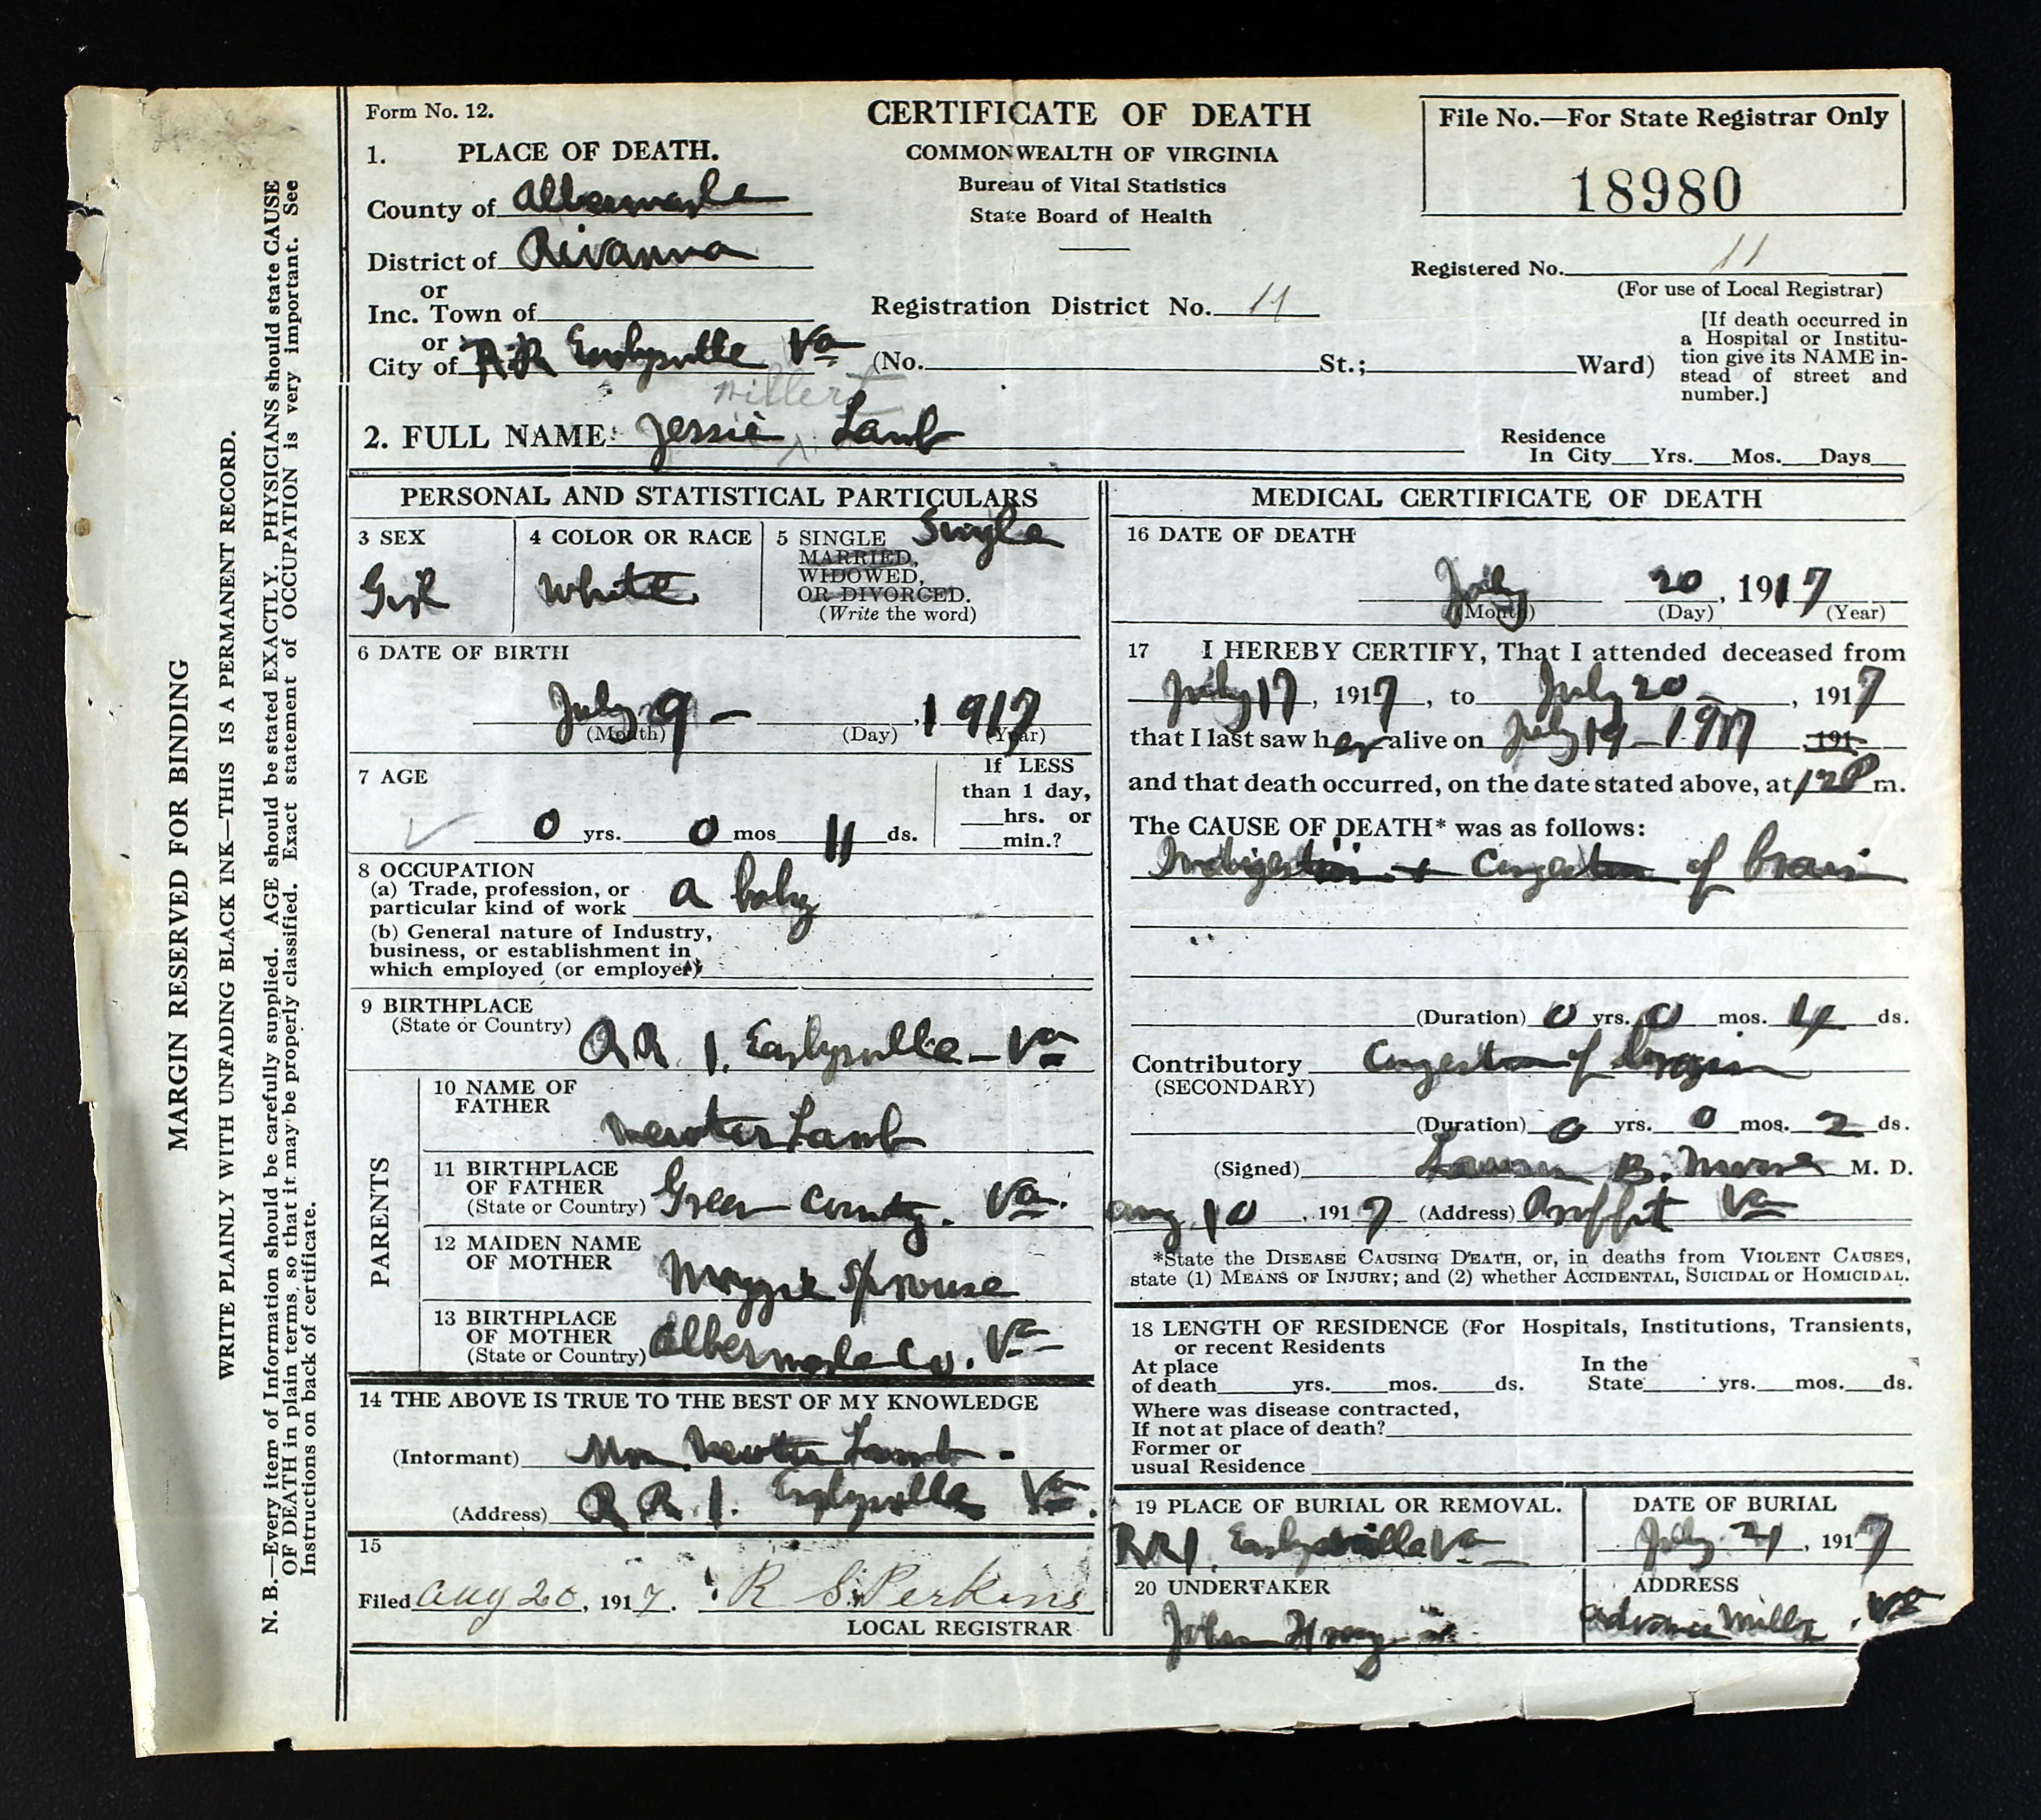 Form No. 12.
CERTIFICATE OF DEATH
COMMONWEALTH OF VIRGINIA
Bureau of Vital Statistics
State Board of Health
File No.—For State Registrar Only
18980
1. PLACE OF DEATH.
County of Albermarle
District of Rivanna
or
Inc. Town of
or
City of RR Earlysville Va (No. St.; Ward)
Registration District No. 11
Registered No. 11
(For use of Local Registrar)
[If death occurred in
a Hospital or Institu-
tion give its NAME in-
stead of street and
number.]
Millert
2. FULL NAME Jessie ^ Lamb
Residence
In City Yrs. Mos. Days
PERSONAL AND STATISTICAL PARTICULARS
3 SEX
Girl
4 COLOR OR RACE
White
5 SINGLE Single
MARRIED,
WIDOWED,
OR DIVORCED.
(Write the word)
6 DATE OF BIRTH
July 9 — , 1917
(Month) (Day) (Year)
7 AGE
0 yrs. 0 mos 11 ds.
If LESS
than 1 day,
hrs. or
min.?
8 OCCUPATION
(a) Trade, profession, or
particular kind of work a baby
(b) General nature of Industry,
business, or establishment in
which employed (or employer)
9 BIRTHPLACE
(State or Country) RR 1. Earlysville — Va
PARENTS
10 NAME OF
FATHER
Lamb
11 BIRTHPLACE
OF FATHER
(State or Country) Green County. Va.
12 MAIDEN NAME
OF MOTHER Maggie Sprouse
13 BIRTHPLACE
OF MOTHER
(State or Country) Albermarle Co. Va
14 THE ABOVE IS TRUE TO THE BEST OF MY KNOWLEDGE
(Informant) Lamb
(Address) RR 1. Earlysville Va.
15
Filed Aug 20, 1917. R S. Perkins
LOCAL REGISTRAR
MEDICAL CERTIFICATE OF DEATH
16 DATE OF DEATH
July 20, 1917
(Month) (Day) (Year)
17 I HEREBY CERTIFY, That I attended deceased from
July 17, 1917, to July 20, 1917
that I last saw her alive on July 19 – 1917 191
and that death occurred, on the date stated above, at 12 P m.
The CAUSE OF DEATH* was as follows:
Indigestion + Congestion of brain
(Duration) 0 yrs. 0 mos. 4 ds.
Contributory Congestion of brain
(SECONDARY)
(Duration) 0 yrs. 0 mos. 2 ds.
(Signed) B. M. D.
Aug 10, 1917 (Address) Proffit Va
*State the DISEASE CAUSING DEATH, or, in deaths from VIOLENT CAUSES,
state (1) MEANS OF INJURY; and (2) whether ACCIDENTAL, SUICIDAL or HOMICIDAL.
18 LENGTH OF RESIDENCE (For Hospitals, Institutions, Transients,
or recent Residents
At place
of death yrs. mos. ds.
In the
State yrs. mos. ds.
Where was disease contracted,
If not at place of death?
Former or
usual Residence
19 PLACE OF BURIAL OR REMOVAL.
RR1. Earlysville Va
DATE OF BURIAL
July 21, 1917
20 UNDERTAKER
John
ADDRESS
Advance Mills, Va
MARGIN RESERVED FOR BINDING
WRITE PLAINLY WITH UNFADING BLACK INK—THIS IS A PERMANENT RECORD.
N. B.—Every item of Information should be carefully supplied. AGE should be stated EXACTLY. PHYSICIANS should state CAUSE
OF DEATH in plain terms, so that it may be properly classified. Exact statement of OCCUPATION is very important. See
Instructions on back of certificate.